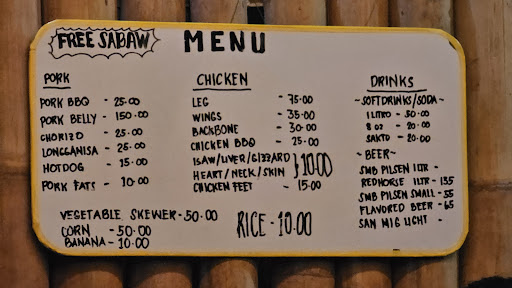 FREE SABAW
MENU
PORK
PORK BBQ - 25.00
PORK BELLY - 150.00
CHORIZO - 25.00
LONGGANISA - 25.00
HOTDOG - 15.00
PORK FATS - 10.00
CHICKEN
LEG - 75.00
WINGS - 35.00
BACKBONE - 30.00
CHICKEN BBQ - 25.00
ISAW/LIVER/GIZZARD
HEART/NECK/SKIN } 10.00
CHICKEN FEET - 15.00
DRINKS
~SOFTDRINKS/SODA~
1 LITRO - 50.00
8 OZ - 20.00
SAKTO - 20.00
~BEER~
SMB PILSEN 1LTR -
REDHORSE 1LTR - 135
SMB PILSEN SMALL - 55
FLAVORED BEER - 65
SAN MIG LIGHT -
VEGETABLE SKEWER - 50.00
CORN - 50.00
BANANA - 10.00
RICE - 10.00